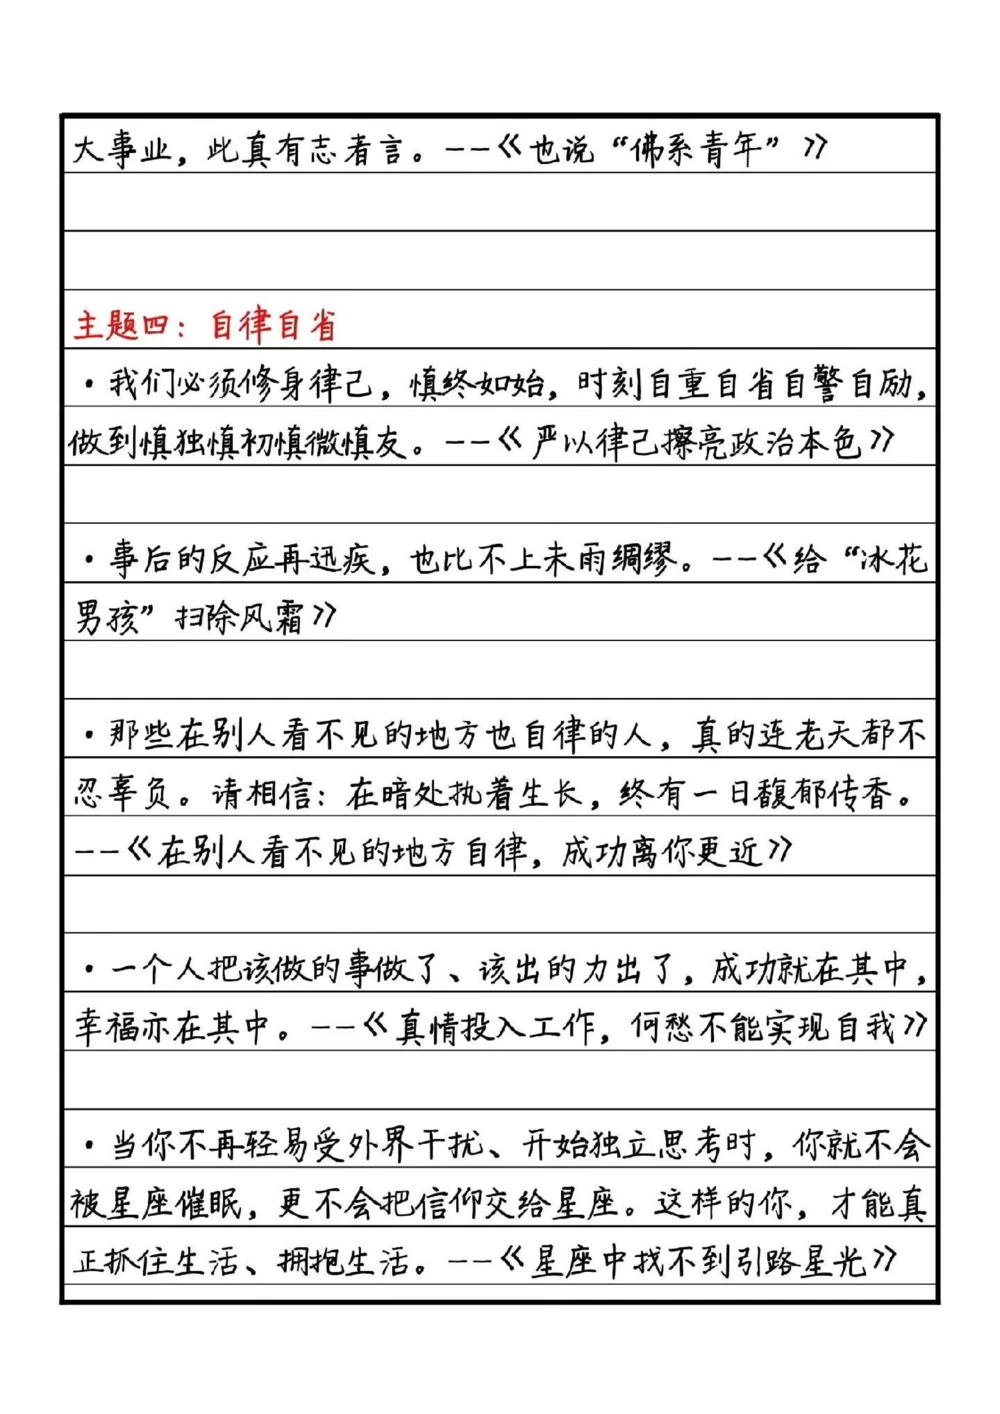 大事业，此真有志者言。--《也说“佛系青年”》
主题四：自律自省
·我们必须修身律己，慎终如始，时刻自重自省自警自励，
做到慎独慎初慎微慎友。--《严以律己擦亮政治本色》
·事后的反应再迅疾，也比不上未雨绸缪。--《给“冰花
男孩”扫除风霜》
·那些在别人看不见的地方也自律的人，真的连老天都不
忍辜负。请相信：在暗处执着生长，终有一日馥郁传香。
--《在别人看不见的地方自律，成功离你更近》
·一个人把该做的事做了、该出的力出了，成功就在其中，
幸福亦在其中。--《真情投入工作，何愁不能实现自我》
·当你不再轻易受外界干扰、开始独立思考时，你就不会
被星座催眠，更不会把信仰交给星座。这样的你，才能真
正抓住生活、拥抱生活。--《星座中找不到引路星光》